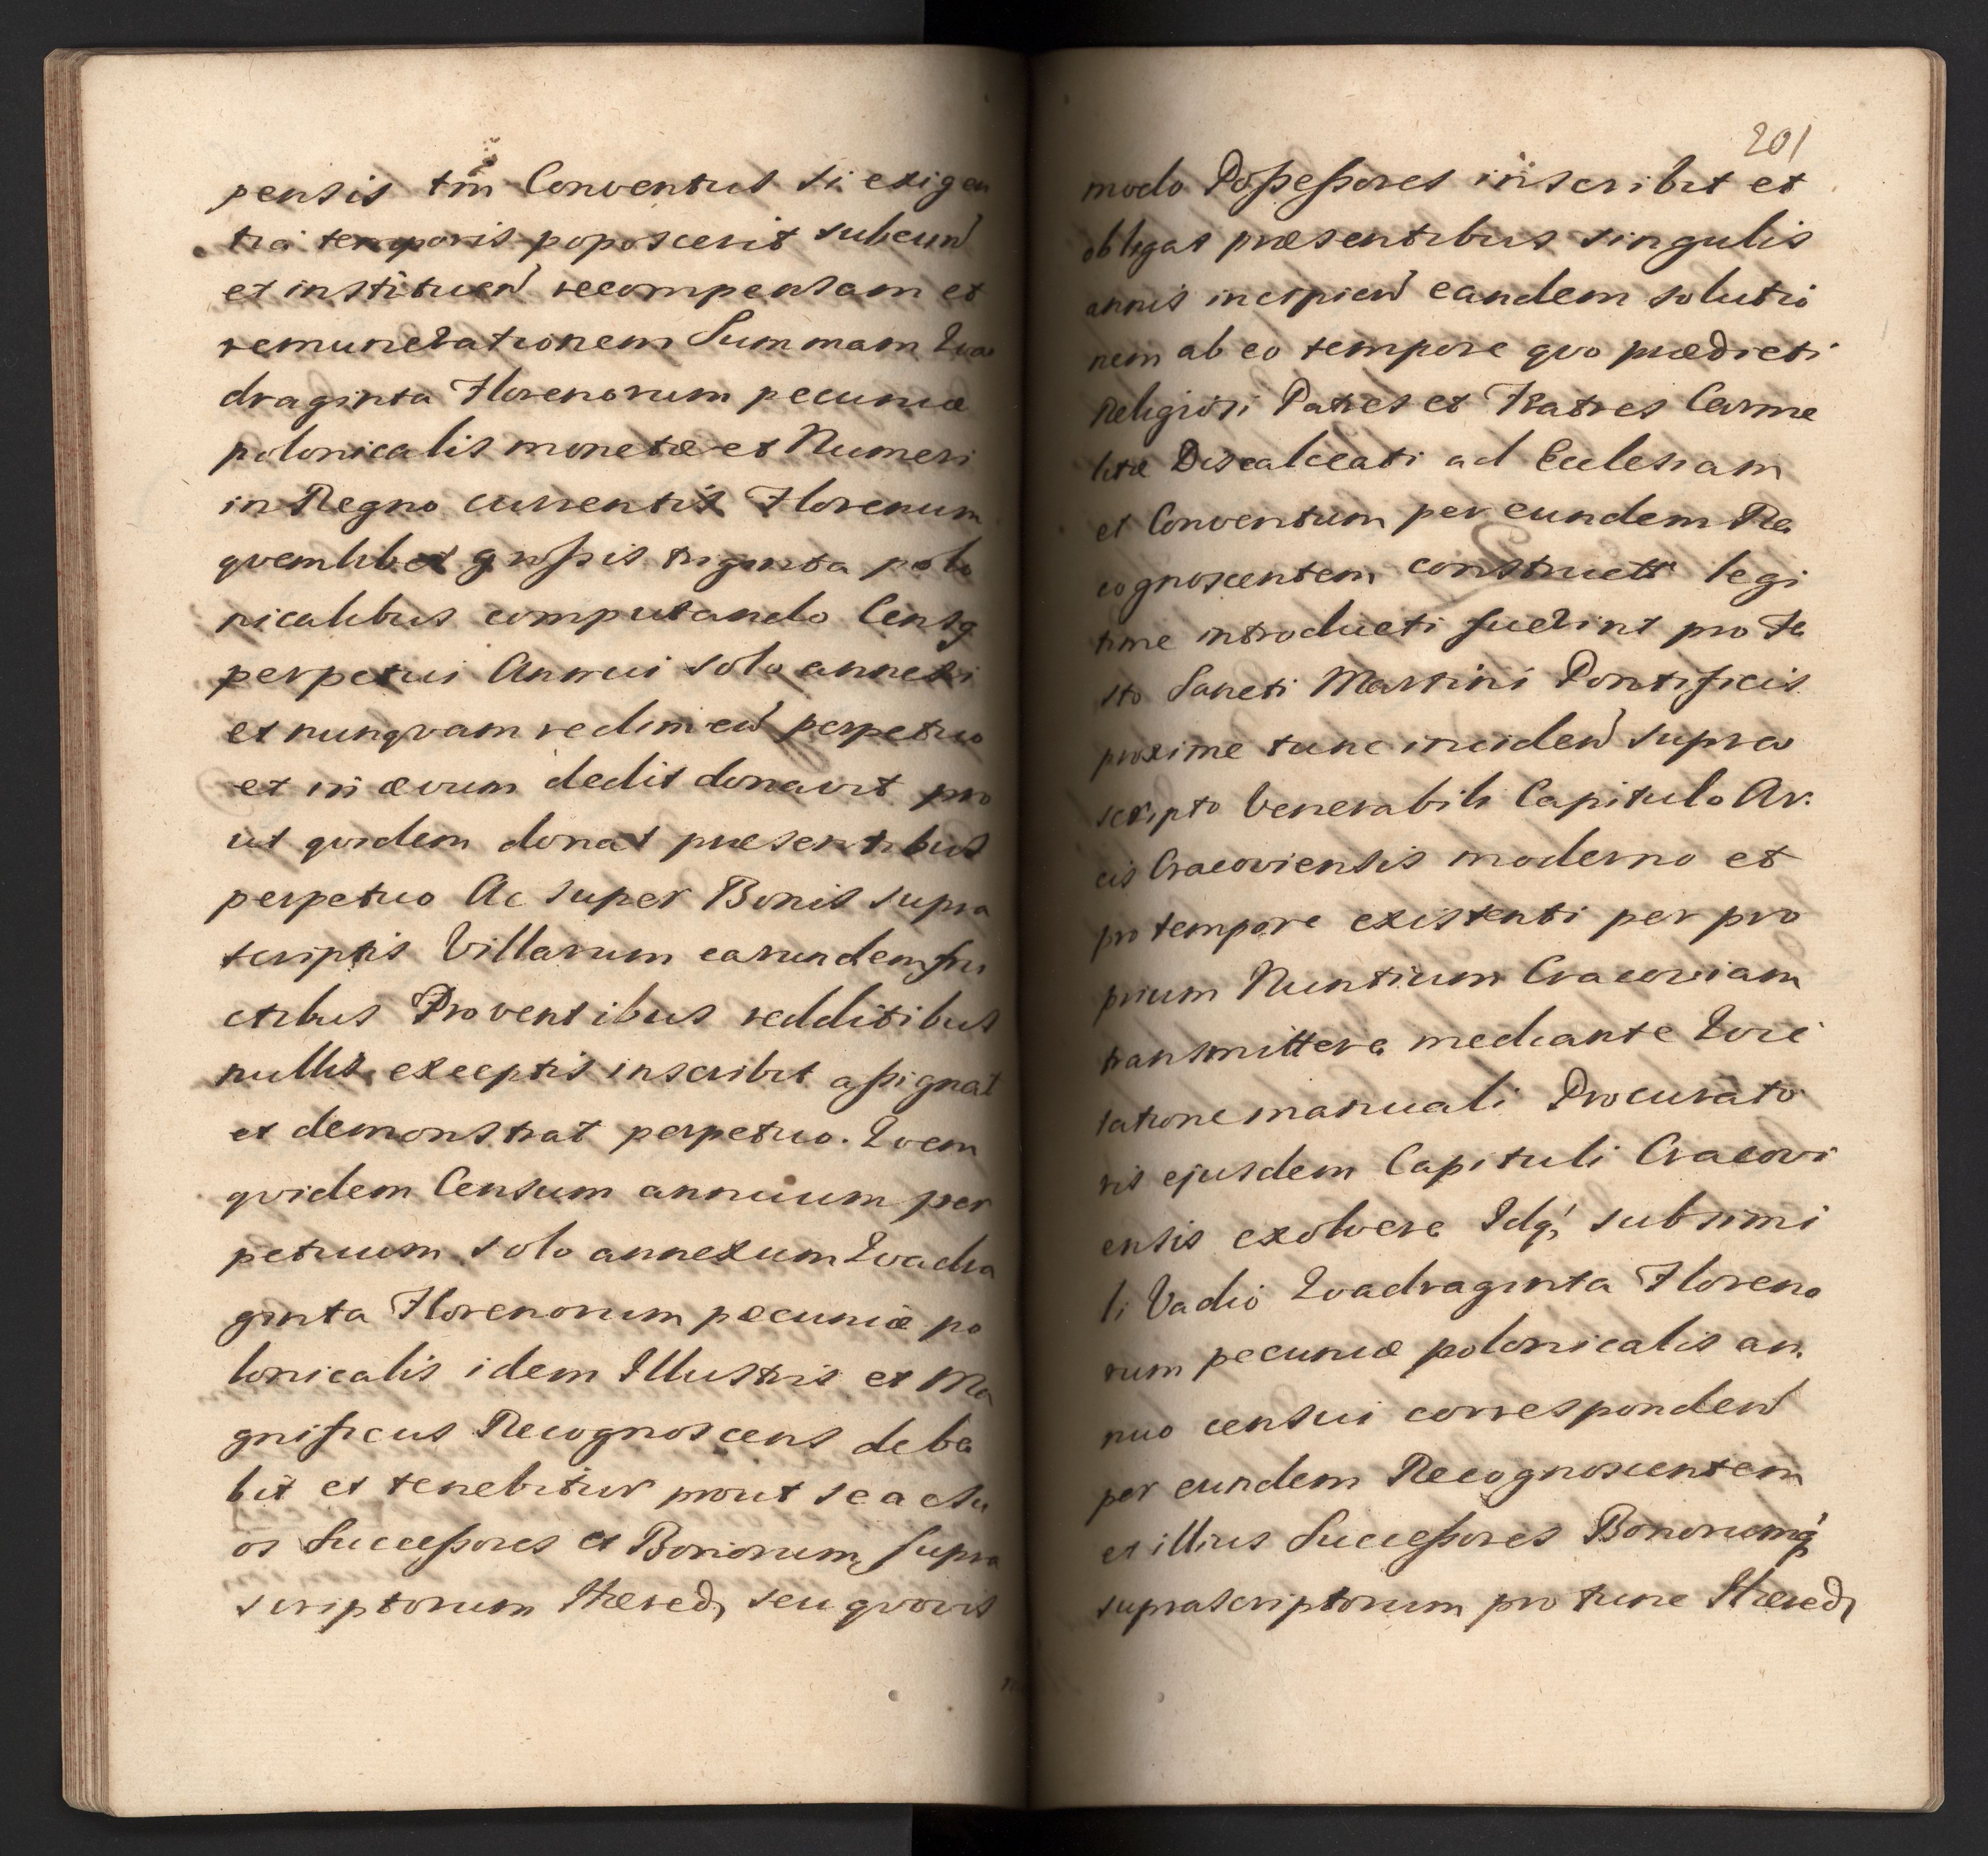 pensis tm̃ Conventus si exigen
tia temporis poposcerit subeun̄
et instituen̄ recompensam et
remunerationem Summam Qva
draginta Florenorum pecuniæ
polonicalis monetæ et Numeri
in Regno currentis Florenum
qvemlibet großis triginta polo
nicalibus computando Censq
perpetui Annui solo annexi
et nunqvam redimen̄ perpetuo
et in ævum dedit donavit pro
ut qvidem donat præsentibus
perpetuo Ac super Bonis supra
scriptis Villarum earundem fru
ctibus Proventibus redditibus
nullis exceptis inscribit aßignat
et demonstrat perpetuo. Qvem
qvidem Censum annuum per
petuum solo annexum Qvadra
ginta Florenorum pecuniæ po
lonicalis idem Illustris et Ma
gnificus Recognoscens debe
bit et tenebitur prout se ac su
os Succeßores et Bonorum supra
scriptorum Hæred, seu qvovis
201
modo Poßeßores inscribit et
obligat præsentibus singulis
annis incipien̄ eandem solutio
nem ab eo tempore qvo prædicti
Religiosi Patres et Fratres Carme
litæ Discalceati ad Ecclesiam
et Conventum per eundem Re
cognoscentem constructi legi
time introducti fuerint pro Fe
sto Sancti Martini Pontificis
proxime tunc inciden̄ supra
scripto Venerabili Capitulo Ar
cis Cracoviensis moderno et
pro tempore existenti per pro
prium Nuntium Cracoviam
transmittere mediante Qvie
tatione manuali Procurato
ris ejusdem Capituli Cracovi
ensis exolvere Idq, sub simi
li Vadio Qvadraginta Floreno
rum pecuniæ polonicalis an
nuo censui corresponden̄
per eundem Recognoscentem
et illius Succeßores Bonorumq,
suprascriptorum pro tunc Hæred,